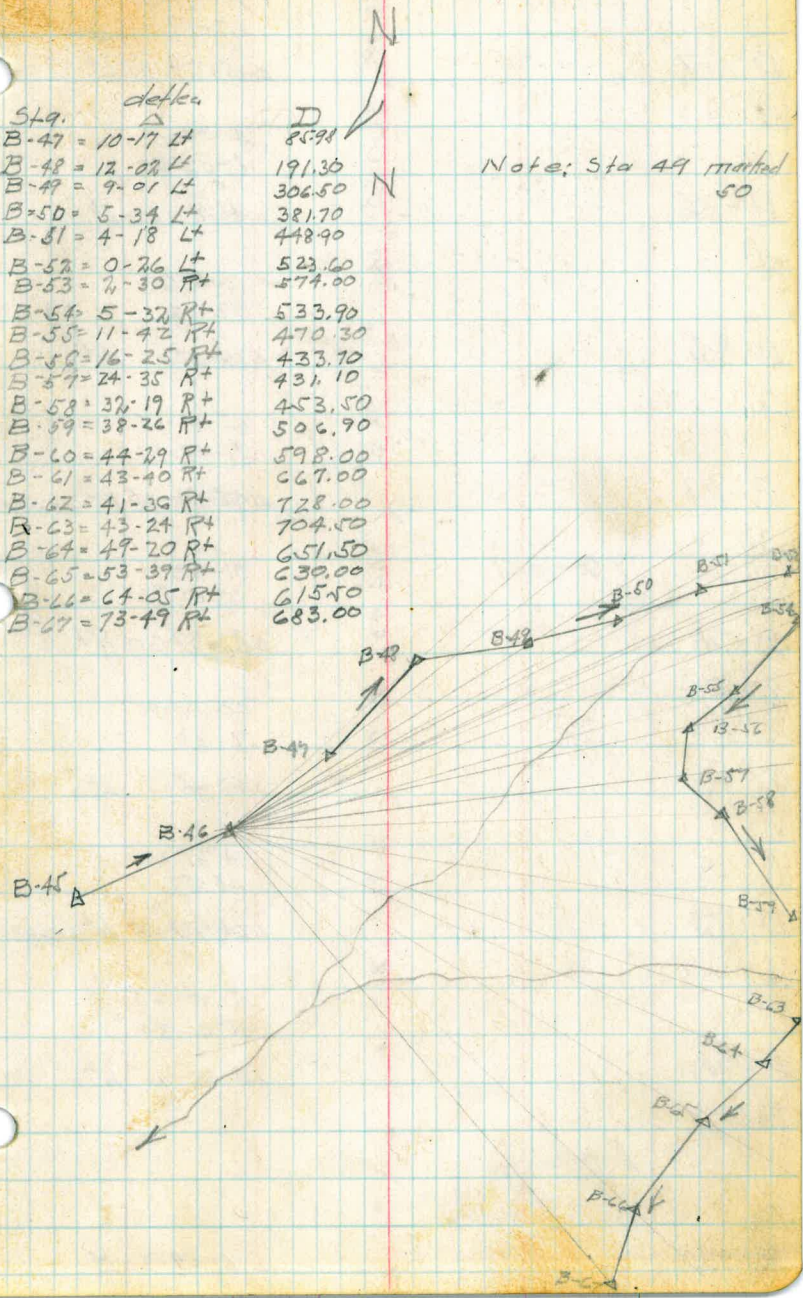 N
deflec
Sta. △ D
B-47 = 10-17 Lt 85.98
B-48 = 12-02 Lt 191.30
B-49 = 9-01 Lt 306.50
B-50 = 5-34 Lt 381.70
B-51 = 4-18 Lt 448.90
B-52 = 0-26 Lt 523.60
B-53 = 2-30 Rt 574.00
B-54 = 5-32 Rt 533.90
B-55 = 11-42 Rt 470.30
B-56 = 16-25 Rt 433.70
B-57 = 24-35 Rt 431.10
B-58 = 32-19 Rt 453.50
B-59 = 38-26 Rt 506.90
B-60 = 44-29 Rt 598.00
B-61 = 43-40 Rt 667.00
B-62 = 41-36 Rt 728.00
B-63 = 43-24 Rt 704.50
B-64 = 49-20 Rt 651.50
B-65 = 53-39 Rt 630.00
B-66 = 64-05 Rt 615.50
B-67 = 73-49 Rt 683.00
N
Note: Sta 49 marked
50
B-51
B-50
B-54
B-49
B-48
B-55
B-56
B-47
B-57
B-58
B-46
B-45
B-59
B-63
B-64
B-65
B-66